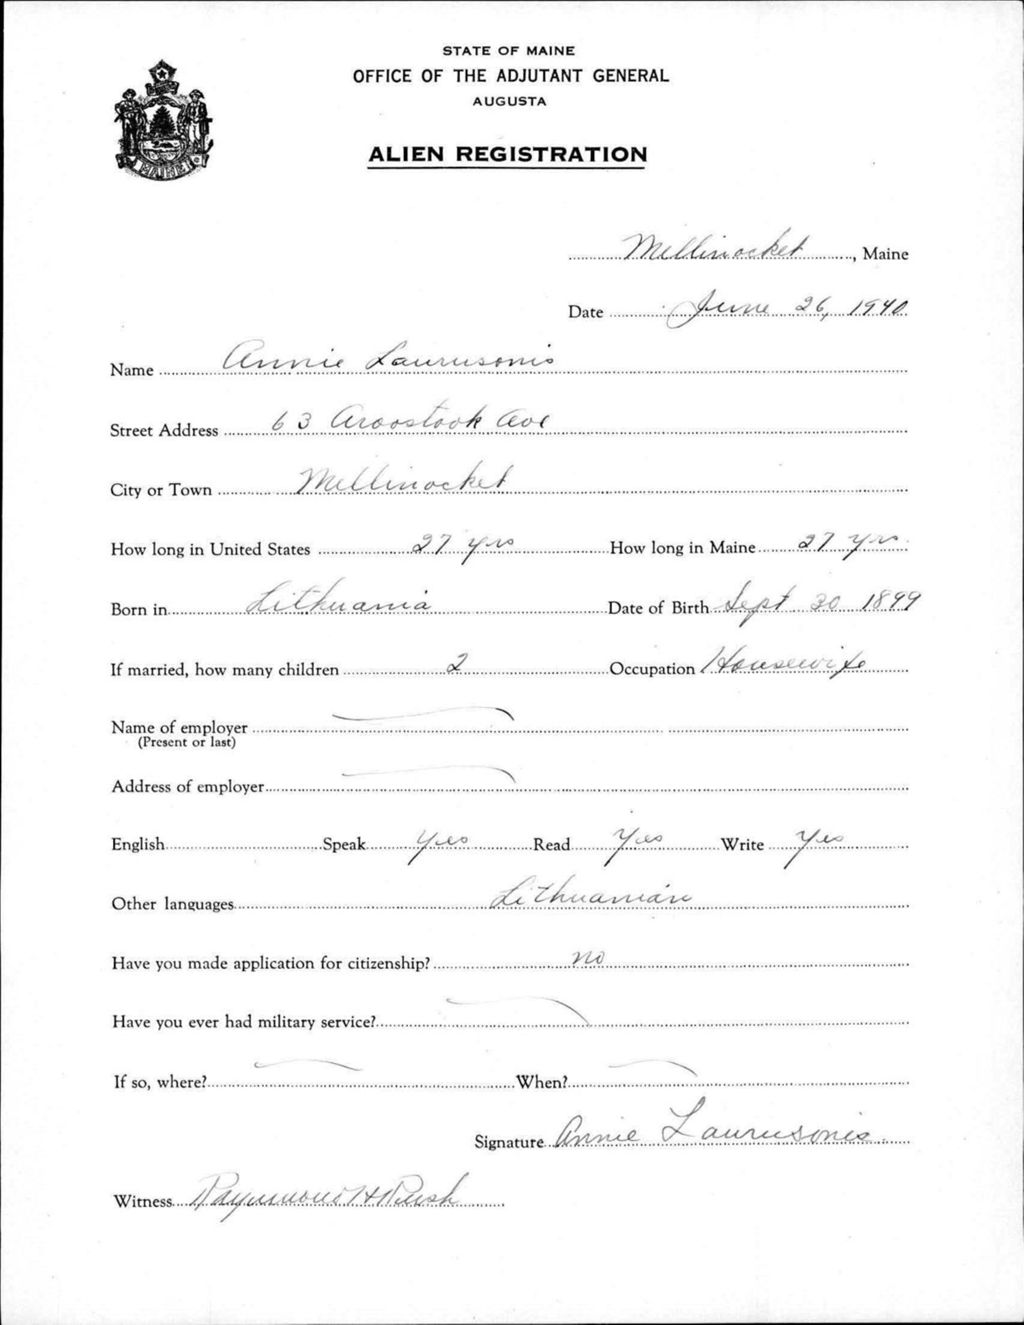 STATE OF MAINE
OFFICE OF THE ADJUTANT GENERAL
AUGUSTA
ALIEN REGISTRATION
MAINE
Millinocket, Maine
Date June 26, 1940
Name Annie Laurusonis
Street Address 63 Aroostook Ave
City or Town Millinocket
How long in United States 27 yrs How long in Maine 27 yrs
Born in Lithuania Date of Birth Sept 30 1899
If married, how many children 2 Occupation Housewife
Name of employer
(Present or last)
Address of employer
English Speak Yes Read Yes Write Yes
Other languages Lithuanian
Have you made application for citizenship? no
Have you ever had military service?
If so, where? When?
Signature Annie Laurusonis
Witness Raymond H